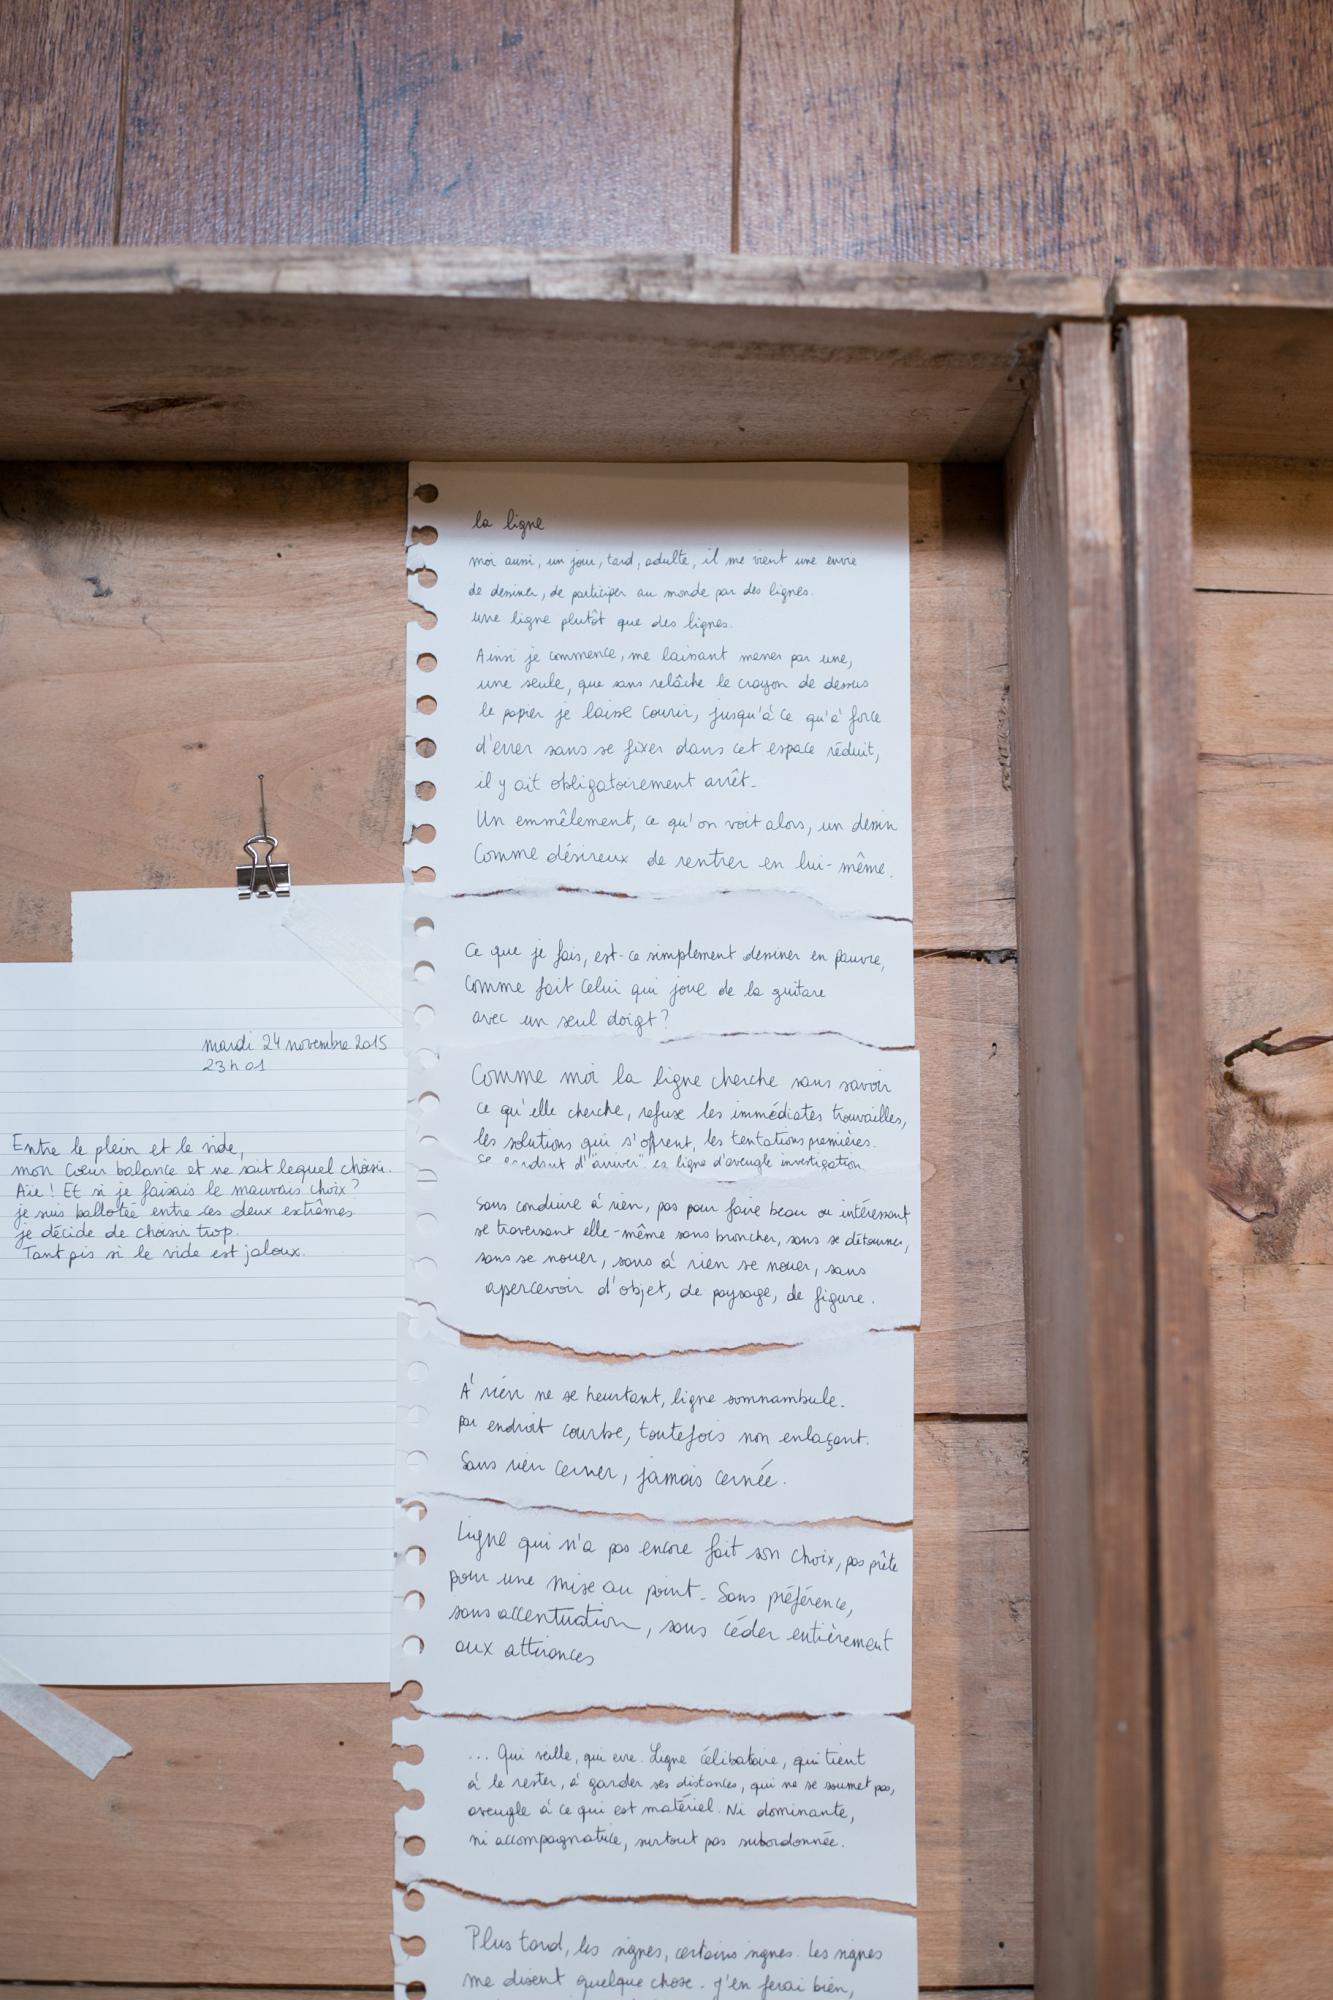 mardi 24 novembre 2015
23h01
Entre le plein et le vide,
mon cœur balance et ne sait lequel choisir.
Aïe ! Et si je faisais le mauvais choix ?
je suis ballotée entre ces deux extrêmes
je décide de choisir trop.
Tant pis si le vide est jaloux.
la ligne
moi aussi, un jour, tard, adulte, il me vient une envie
de dessiner, de participer au monde par des lignes.
une ligne plutôt que des lignes.
Ainsi je commence, me laissant mener par une,
une seule, que sans relâche le crayon de dessus
le papier je laisse courir, jusqu'à ce qu'à force
d'errer sans se fixer dans cet espace réduit,
il y ait obligatoirement arrêt.
Un emmêlement, ce qu'on voit alors, un dessin
comme désireux de rentrer en lui-même.
Ce que je fais, est-ce simplement dessiner en pauvre,
comme fait celui qui joue de la guitare
avec un seul doigt ?
Comme moi la ligne cherche sans savoir
ce qu'elle cherche, refuse les immédiates trouvailles,
les solutions qui s'offrent, les tentations premières.
se d'"arriver" ligne d'aveugle investigation
Sans conduire à rien, pas pour faire beau ou intéressant
se traversant elle-même sans broncher, sans se détourner,
sans se nouer, sans à rien se nouer, sans
apercevoir d'objet, de paysage, de figure.
À rien ne se heurtant, ligne somnambule.
par endroit courbe, toutefois non enlaçant.
Sans rien cerner, jamais cernée.
Ligne qui n'a pas encore fait son choix, pas prête
pour une mise au point. Sans préférence,
sans accentuation, sans céder entièrement
aux attirances
... Qui veille, qui erre. Ligne célibataire, qui tient
à le rester, à garder ses distances, qui ne se soumet pas,
aveugle à ce qui est matériel. Ni dominante,
ni accompagnatrice, surtout pas subordonnée.
Plus tard, les signes, certains signes. Les signes
me disent quelque chose. J'en ferai bien,